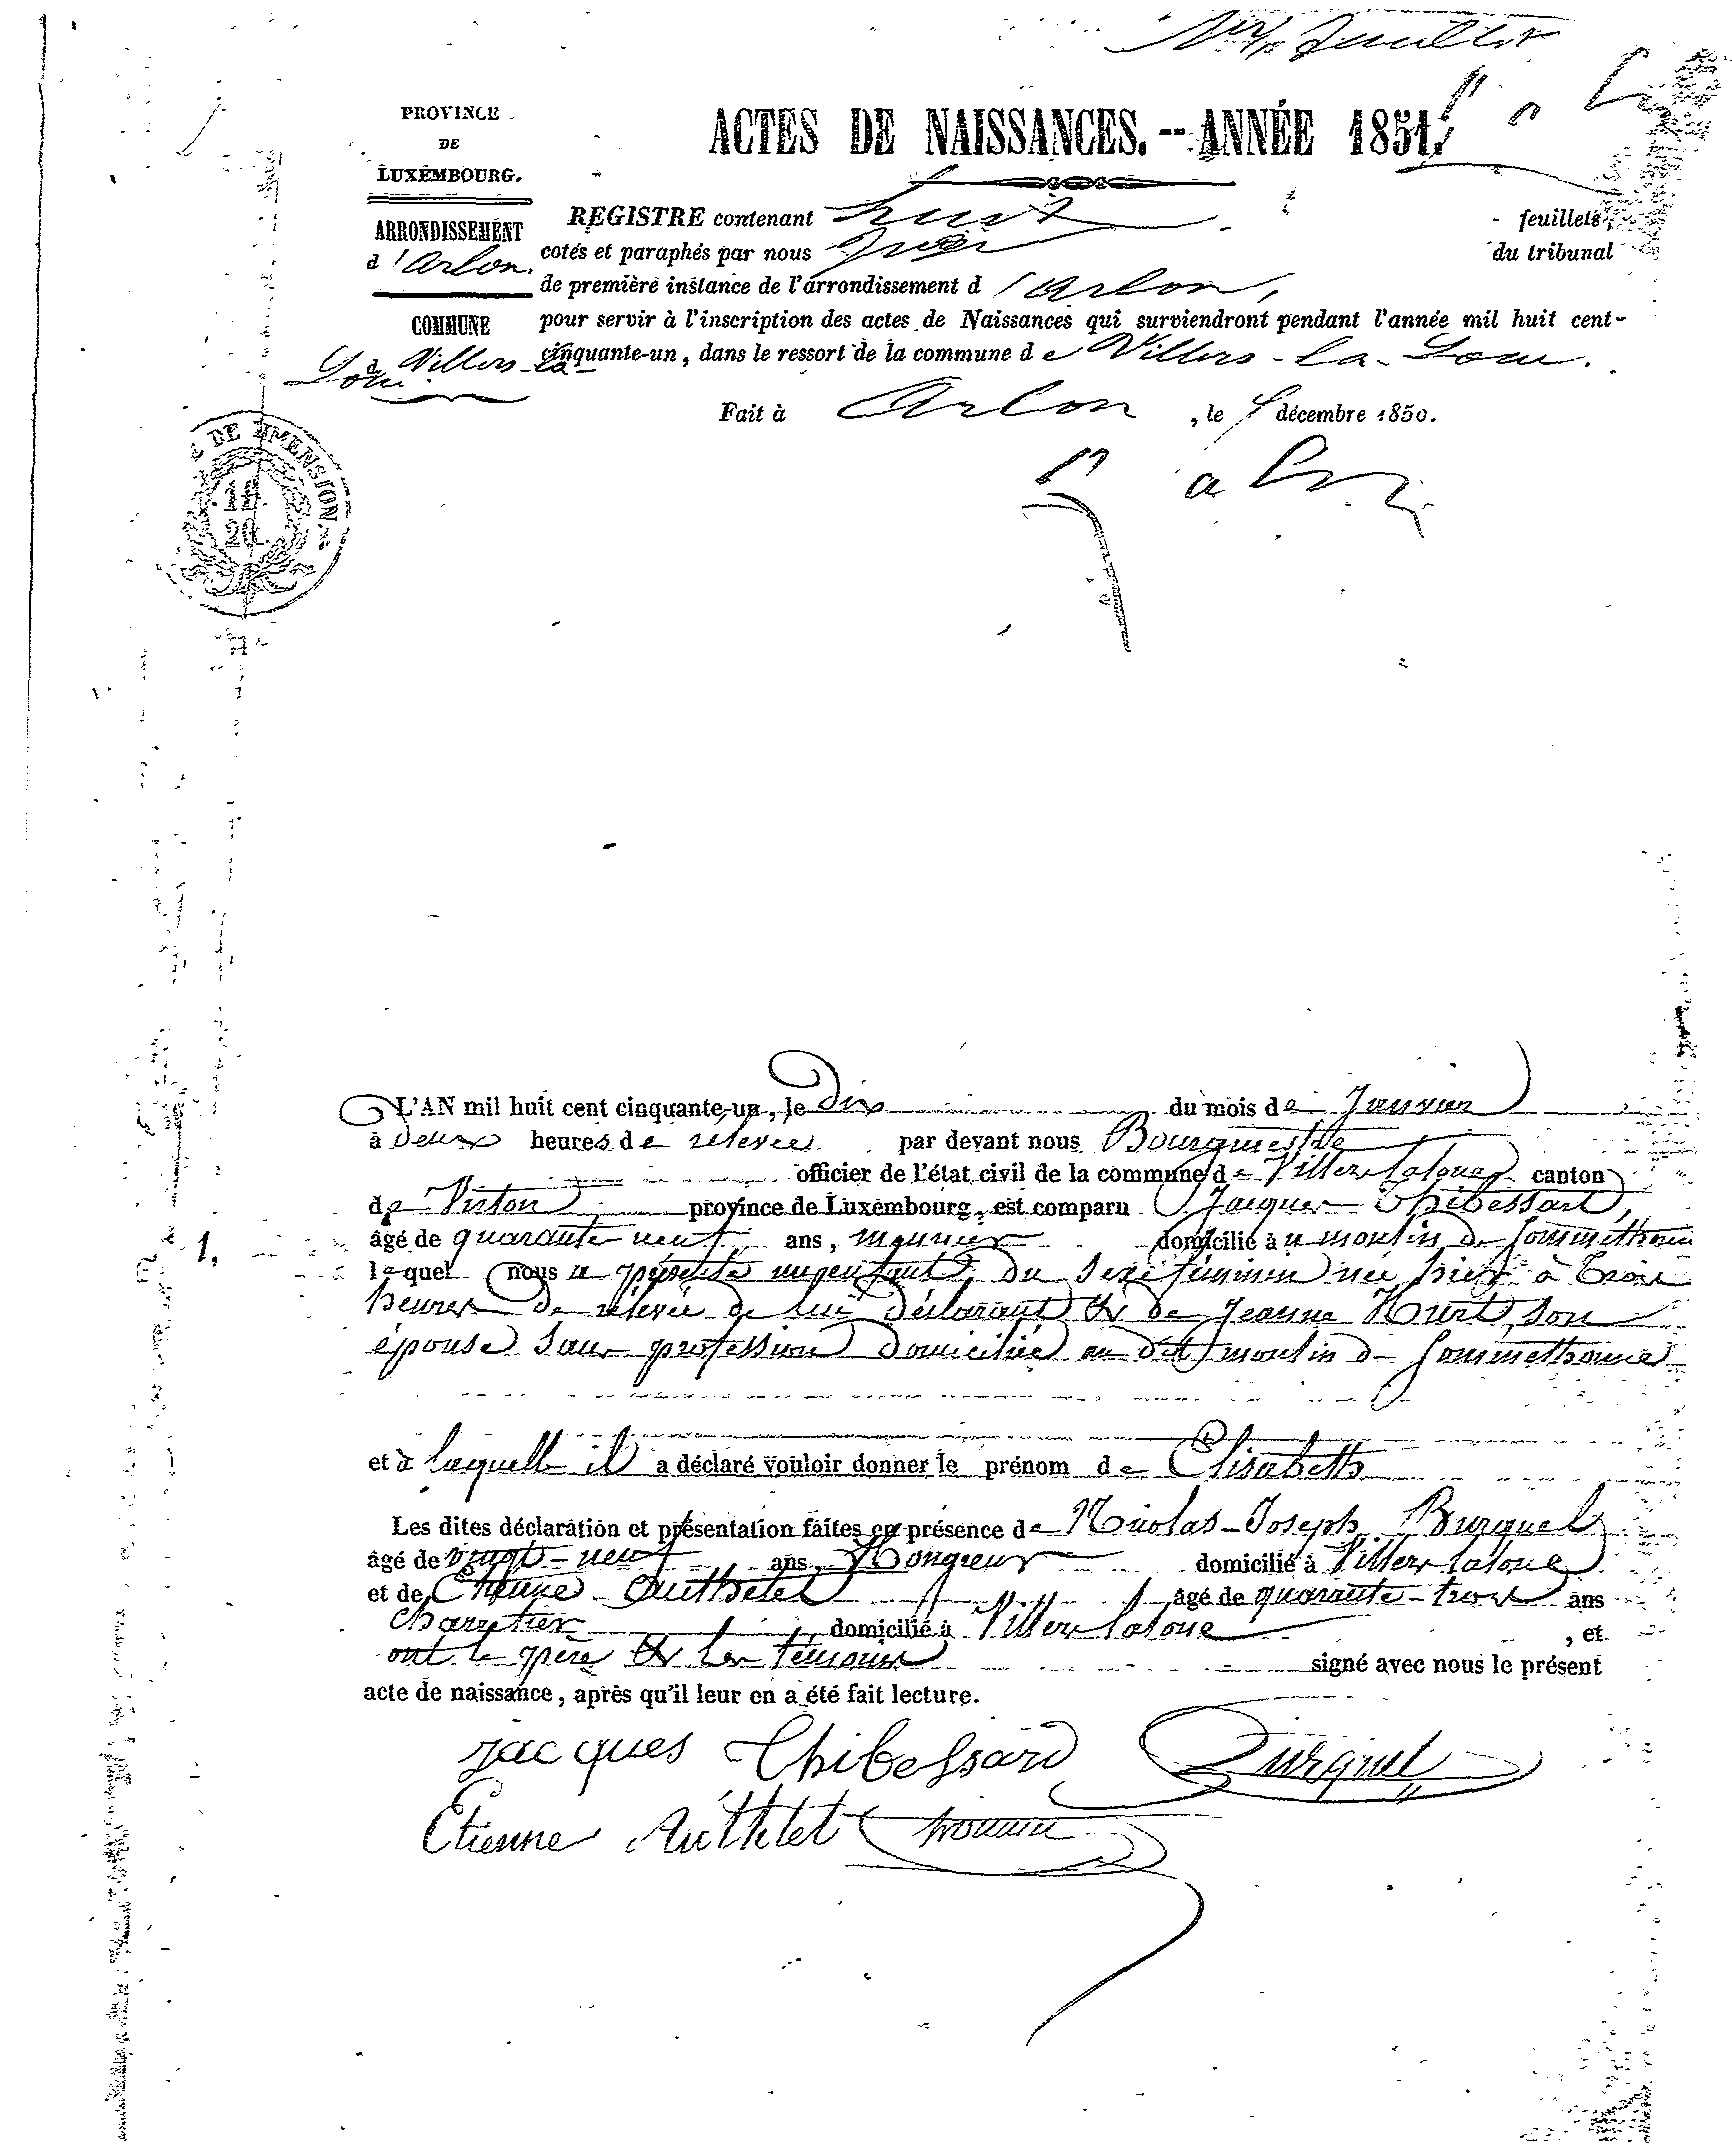 1er feuillet
PROVINCE
DE
LUXEMBOURG.
ACTES DE NAISSANCES. -- ANNÉE 1851.
ARRONDISSEMENT
d'Arlon.
COMMUNE
de Villers-la-
Loue
REGISTRE contenant huit feuillets
cotés et paraphés par nous juge du tribunal
de première instance de l'arrondissement d'Arlon,
pour servir à l'inscription des actes de Naissances qui surviendront pendant l'année mil huit cent-
cinquante-un, dans le ressort de la commune de Villers-la-Loue.
Fait à Arlon, le décembre 1850.
DE DIMENSION
20
L'AN mil huit cent cinquante-un, le Dix du mois de Janvier
à deux heures de relevée par devant nous Bourgmestre
officier de l'état civil de la commune de Villers laloue canton
de Virton province de Luxembourg, est comparu Jacques Thibessart,
âgé de quarante neuf ans, meunier domicilié au moulin de Sommethonne
lequel nous a présenté un enfant du sexe féminin née hier à trois
heures de relevée de lui déclarant & de Jeanne son
épouse sans profession domiciliée au dit moulin de Sommethonne
et à laquelle il a déclaré vouloir donner le prénom de Elisabeth
Les dites déclaration et présentation faites en présence de Nicolas-Joseph Burquel
âgé de vingt-neuf ans, Hongreur domicilié à Villers laloue
et de Etienne Authelet âgé de quarante-trois ans
charretier domicilié à Villers laloue, et
ont le père & les témoins signé avec nous le présent
acte de naissance, après qu'il leur en a été fait lecture.
1.
jacques Thibessard Burquel
Etienne Authelet